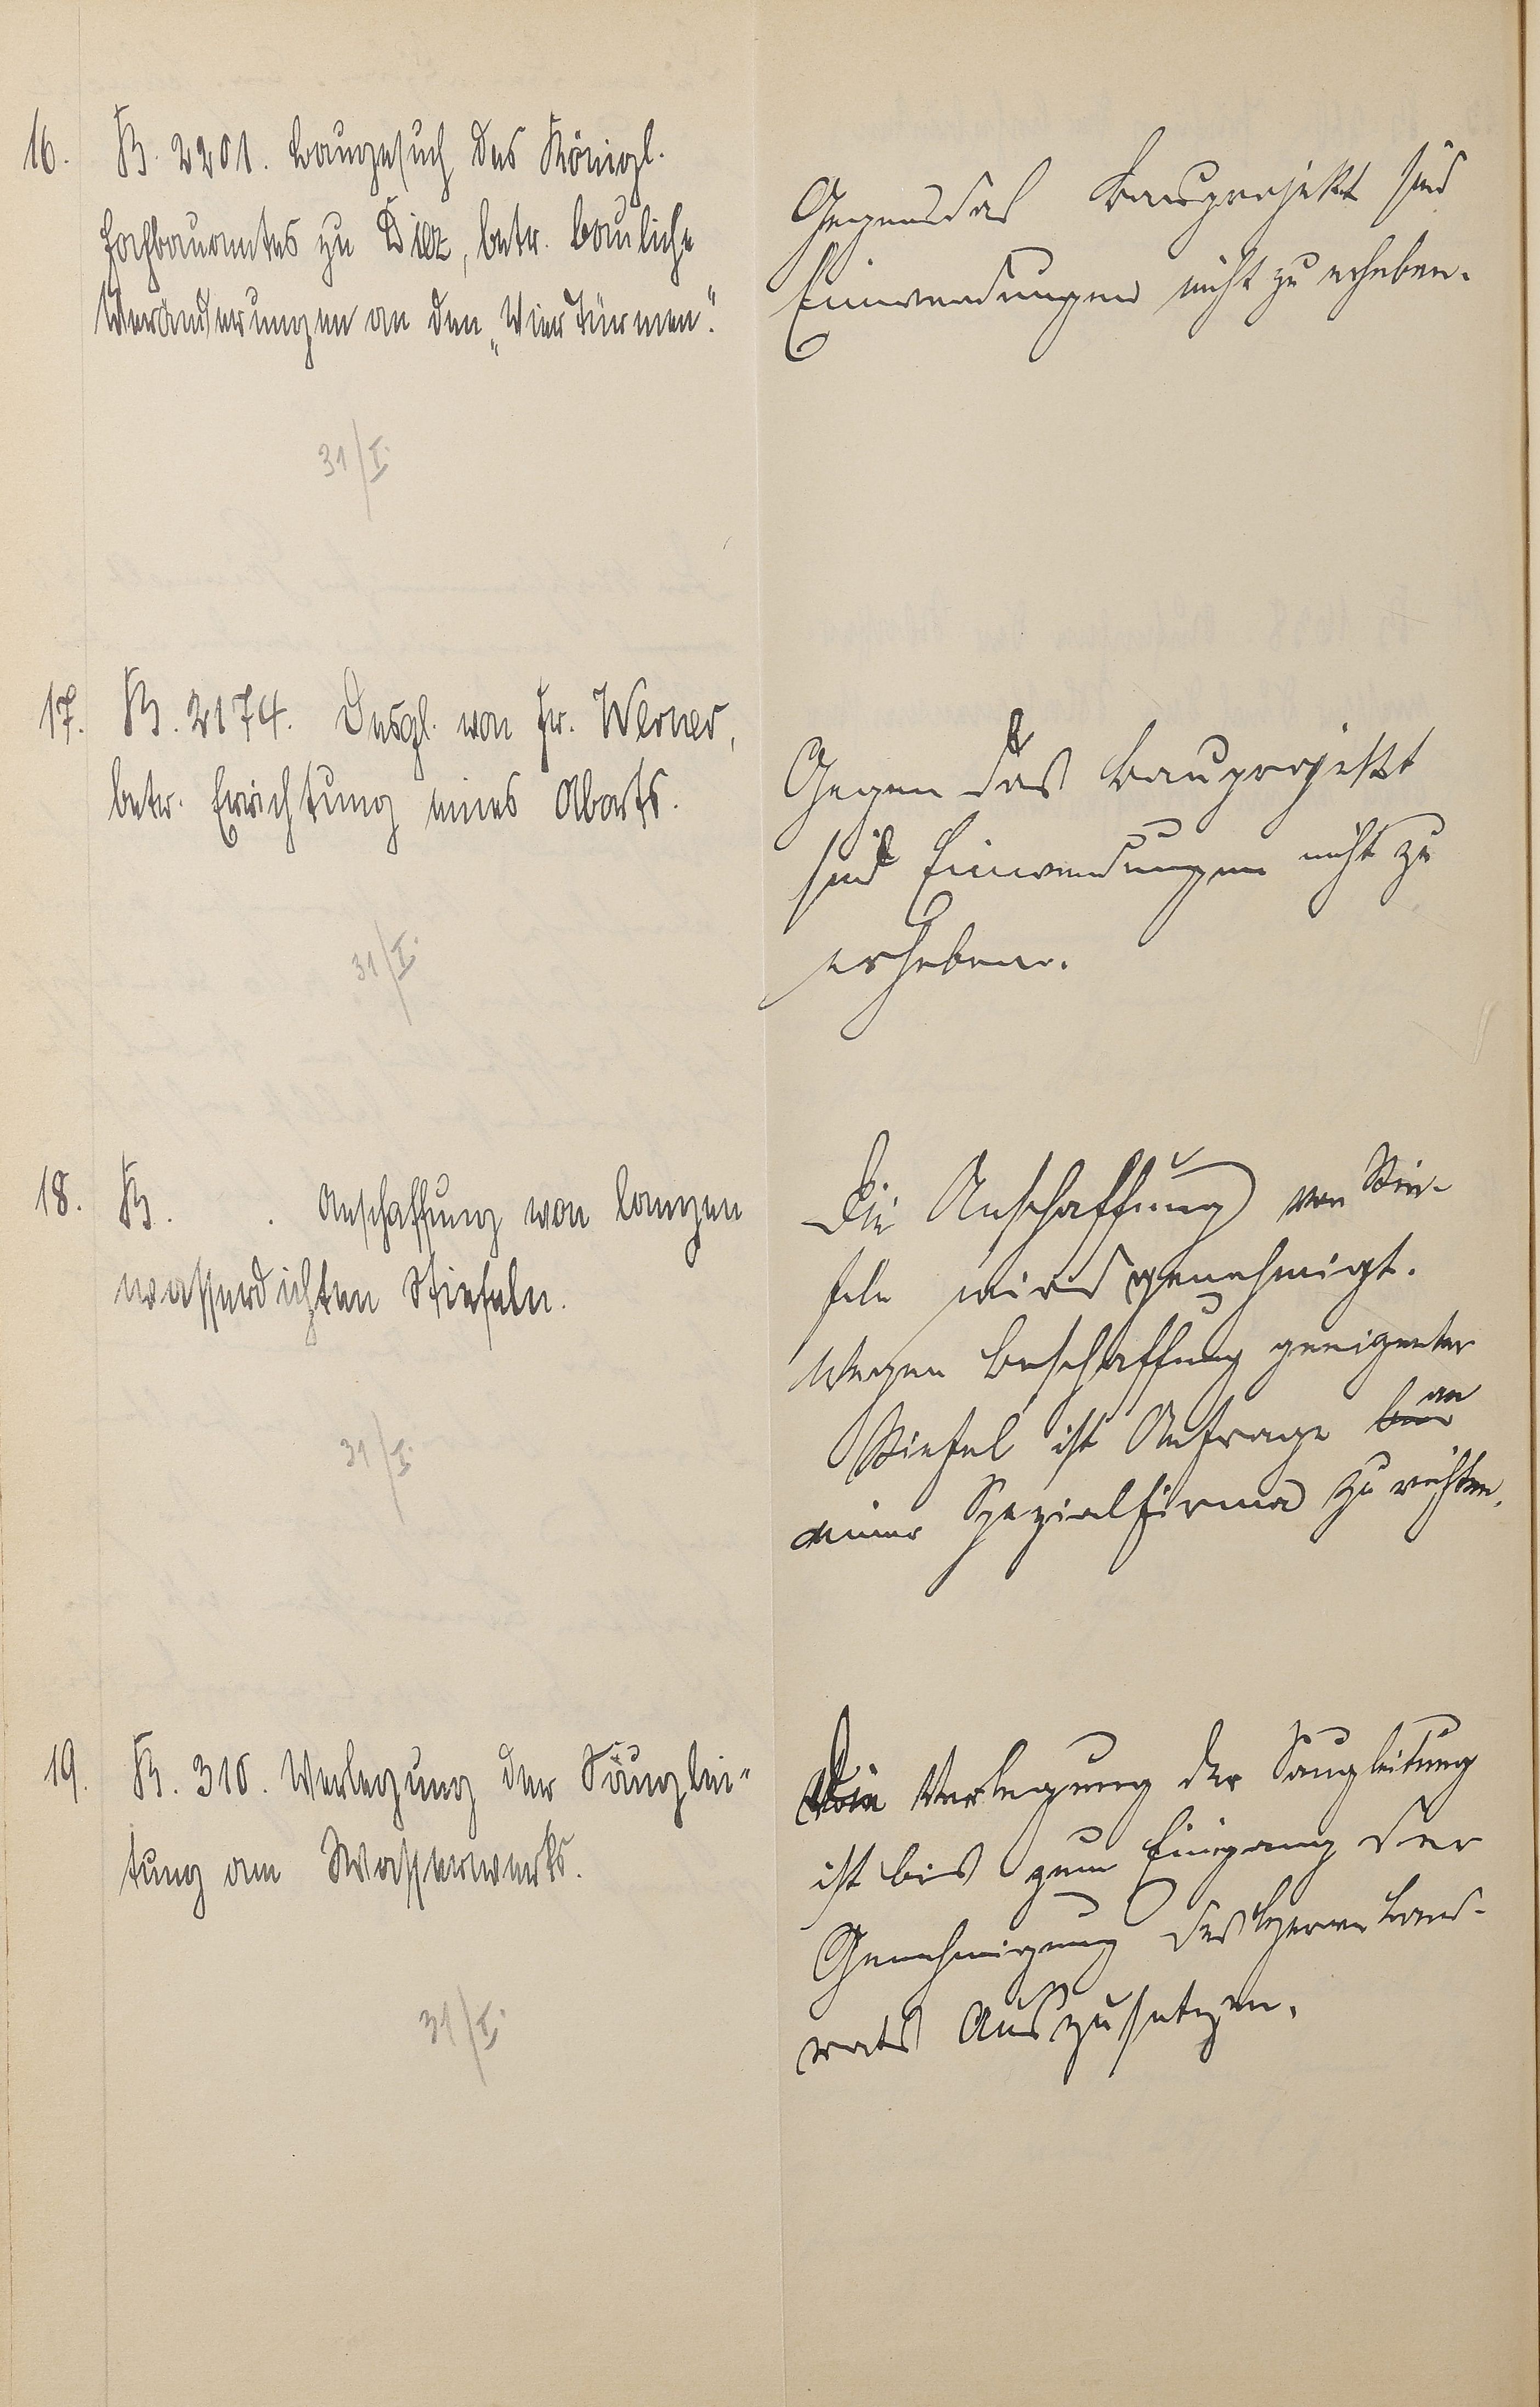 16. B. 2201. Baugesuch des Königl.
Hochbauamtes zu Diez, betr. bauliche
Veränderungen an den „Vier Türmen“.
Gegen das Bauprojekt sind
Einwendungen nicht zu erheben.
31/I.
17. B. 2174. Desgl. von Fr. Werner,
betr. Errichtung eines Aborts.
Gegen das Bauprojekt
sind Einwendungen nicht zu
erheben.
31/I.
18. B. . Anschaffung von langen
wasserdichten Stiefeln.
Die Anschaffung von Stie-
feln wird genehmigt.
Wegen Beschaffung geeigneter
Stiefel ist Anfrage an
einer Spezialfirma zu richten.
31/I.
19. B. 310. Verlegung der Sauglei-
tung am Wasserwerks.
Die Verlegung der Saugleitung
ist bis zum Eingang der
Genehmigung des Herrn Land-
rats auszusetzen.
31/I.